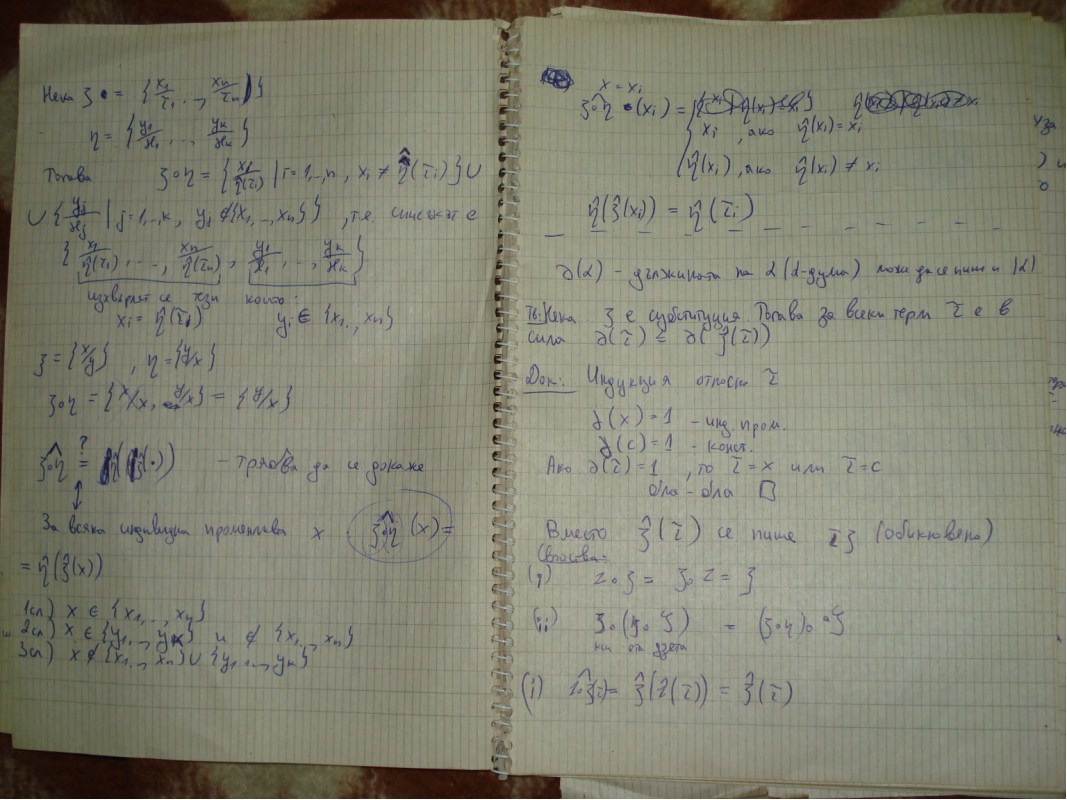 Нека ξ = { x₁/τ₁, .., xₙ/τₙ }
η = { y₁/ϰ₁, .., yₖ/ϰₖ }
Тогава ξ∘η = { xᵢ/η̂(τᵢ) | i=1,..,n, xᵢ ≠ η̂(τᵢ) } ∪
∪ { yⱼ/ϰⱼ | j=1,..,k, yⱼ ∉ {x₁,..,xₙ} }, т.е. списъкът е
{ x₁/η̂(τ₁), ..., xₙ/η̂(τₙ), y₁/ϰ₁, .., yₖ/ϰₖ }
изхвърлят се тези които:
xᵢ = η̂(τᵢ) yᵢ ∈ {x₁.., xₙ}
ξ = {x/y}, η = {y/x}
ξ∘η = {x/x, y/x} = {y/x}
ξ∘η̂ ?= η̂(ξ̂(.)) - трябва да се докаже
↕
За всяка индивидна променлива x ξ∘η̂(x) =
= η̂(ξ̂(x))
1сл) x ∈ {x₁,..,xₙ}
2сл) x ∈ {y₁,..,yₖ} и ∉ {x₁,..,xₙ}
3сл) x ∉ {x₁,..,xₙ} ∪ {y₁,..,yₖ}
x = xᵢ
ξ∘η̂ (xᵢ) =
xᵢ, ако η̂(xᵢ) = xᵢ
η̂(xᵢ), ако η̂(xᵢ) ≠ xᵢ
η̂(ξ̂(xᵢ)) = η̂(τᵢ)
∂(α) - дължината на α (α-дума) може да се пише и |α|
Тв: Нека ξ е субституция. Тогава за всеки терм τ е в
сила ∂(τ) ≤ ∂(ξ̂(τ))
Док: Индукция относно τ
∂(x) = 1 - инд. пром.
∂(c) = 1 - конст.
Ако ∂(τ) = 1, то τ = x или τ = c
бла - бла □
Вместо ξ̂(τ) се пише τξ (обикновено)
Свойства:
(i) ι∘ξ = ξ∘ι = ξ
(ii) ξ∘(η∘ζ) = (ξ∘η)∘ζ
кси ета дзета
(i) ι∘ξ̂(τ) = ξ̂(ι̂(τ)) = ξ̂(τ)